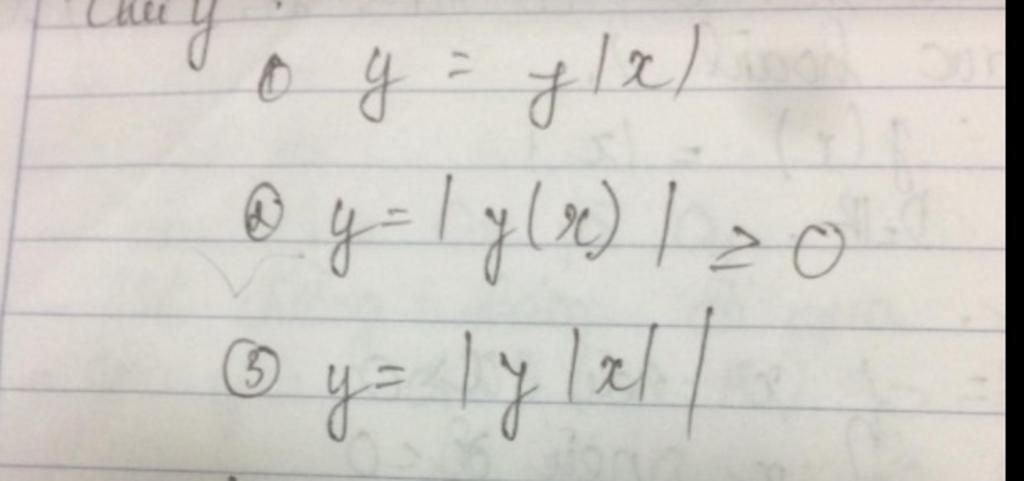 Chú ý :
① y = y|x|
② y = | y(x) | ≥ 0
③ y = | y |x| |